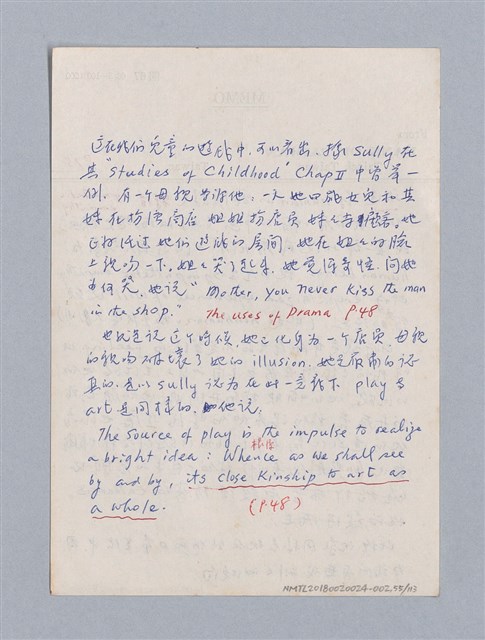 这在我们兒童的遊戏中,可以看出,據 Sully 在
其 "Studies of Childhood" Chap II 中曾举一
例,有一个母親告訴他:一次她四歲女兒和其
妹在扮演商店 姐姐扮店员 妹妹扮顧客。她
正好经过她们遊戏的房间,她在姐姐的脸
上親吻一下。姐姐哭了起来,她觉得奇怪,问她
为何哭,她说 " Mother, you never kiss the man
in the shop." The uses of Drama P.48
也就是说这个时候,她已化身为一个店员,母親
的親吻破壞了她的 illusion. 她是嚴肃的认
真的. 是以 Sully 认为在此一意義下 play 与
art 是同樣的. 他说:
The source of play is the impulse to realize
a bright idea: Whence as we shall see
by and by, its close Kinship to art as
a whole. (P.48)
MEMO
NMTL20180020024-002.55/113